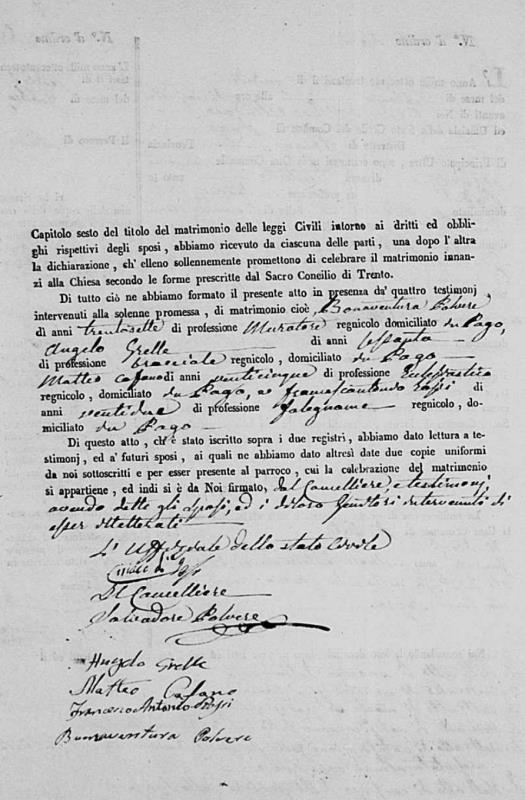 Capitolo sesto del titolo del matrimonio delle leggi Civili intorno ai dritti ed obbli-
ghi rispettivi degli sposi, abbiamo ricevuto da ciascuna delle parti, una dopo l'altra
la dichiarazione, ch'elleno sollennemente promettono di celebrare il matrimonio innan-
zi alla Chiesa secondo le forme prescritte dal Sacro Concilio di Trento.
Di tutto ciò ne abbiamo formato il presente atto in presenza da' quattro testimonj
intervenuti alla solenne promessa, di matrimonio cioè, Bonaventura Polvere
di anni trentasette di professione Muratore regnicolo domiciliato in Pago,
Angelo Grelle di anni sessanta
di professione bracciale regnicolo, domiciliato in Pago
Matteo Cafano di anni venticinque di professione
regnicolo, domiciliato in Pago, e Francescantonio Rossi di
anni ventidue di professione falegname regnicolo, do-
miciliato in Pago
Di questo atto, ch'è stato iscritto sopra i due registri, abbiamo dato lettura a te-
stimonj, ed a' futuri sposi, ai quali ne abbiamo dato altresì date due copie uniformi
da noi sottoscritti e per esser presente al parroco, cui la celebrazione del matrimonio
si appartiene, ed indi si è da Noi firmato, dal Cancelliere, e testimonj,
avendo detto gli sposi, ed i di loro genitori intervenuti di
esser illetterati
L'Uffiziale dello stato civile
Il Cancelliere
Salvadore Polvere
Angelo Grelle
Matteo Cafano
Francesco Antonio Rossi
Buonaventura Polvere